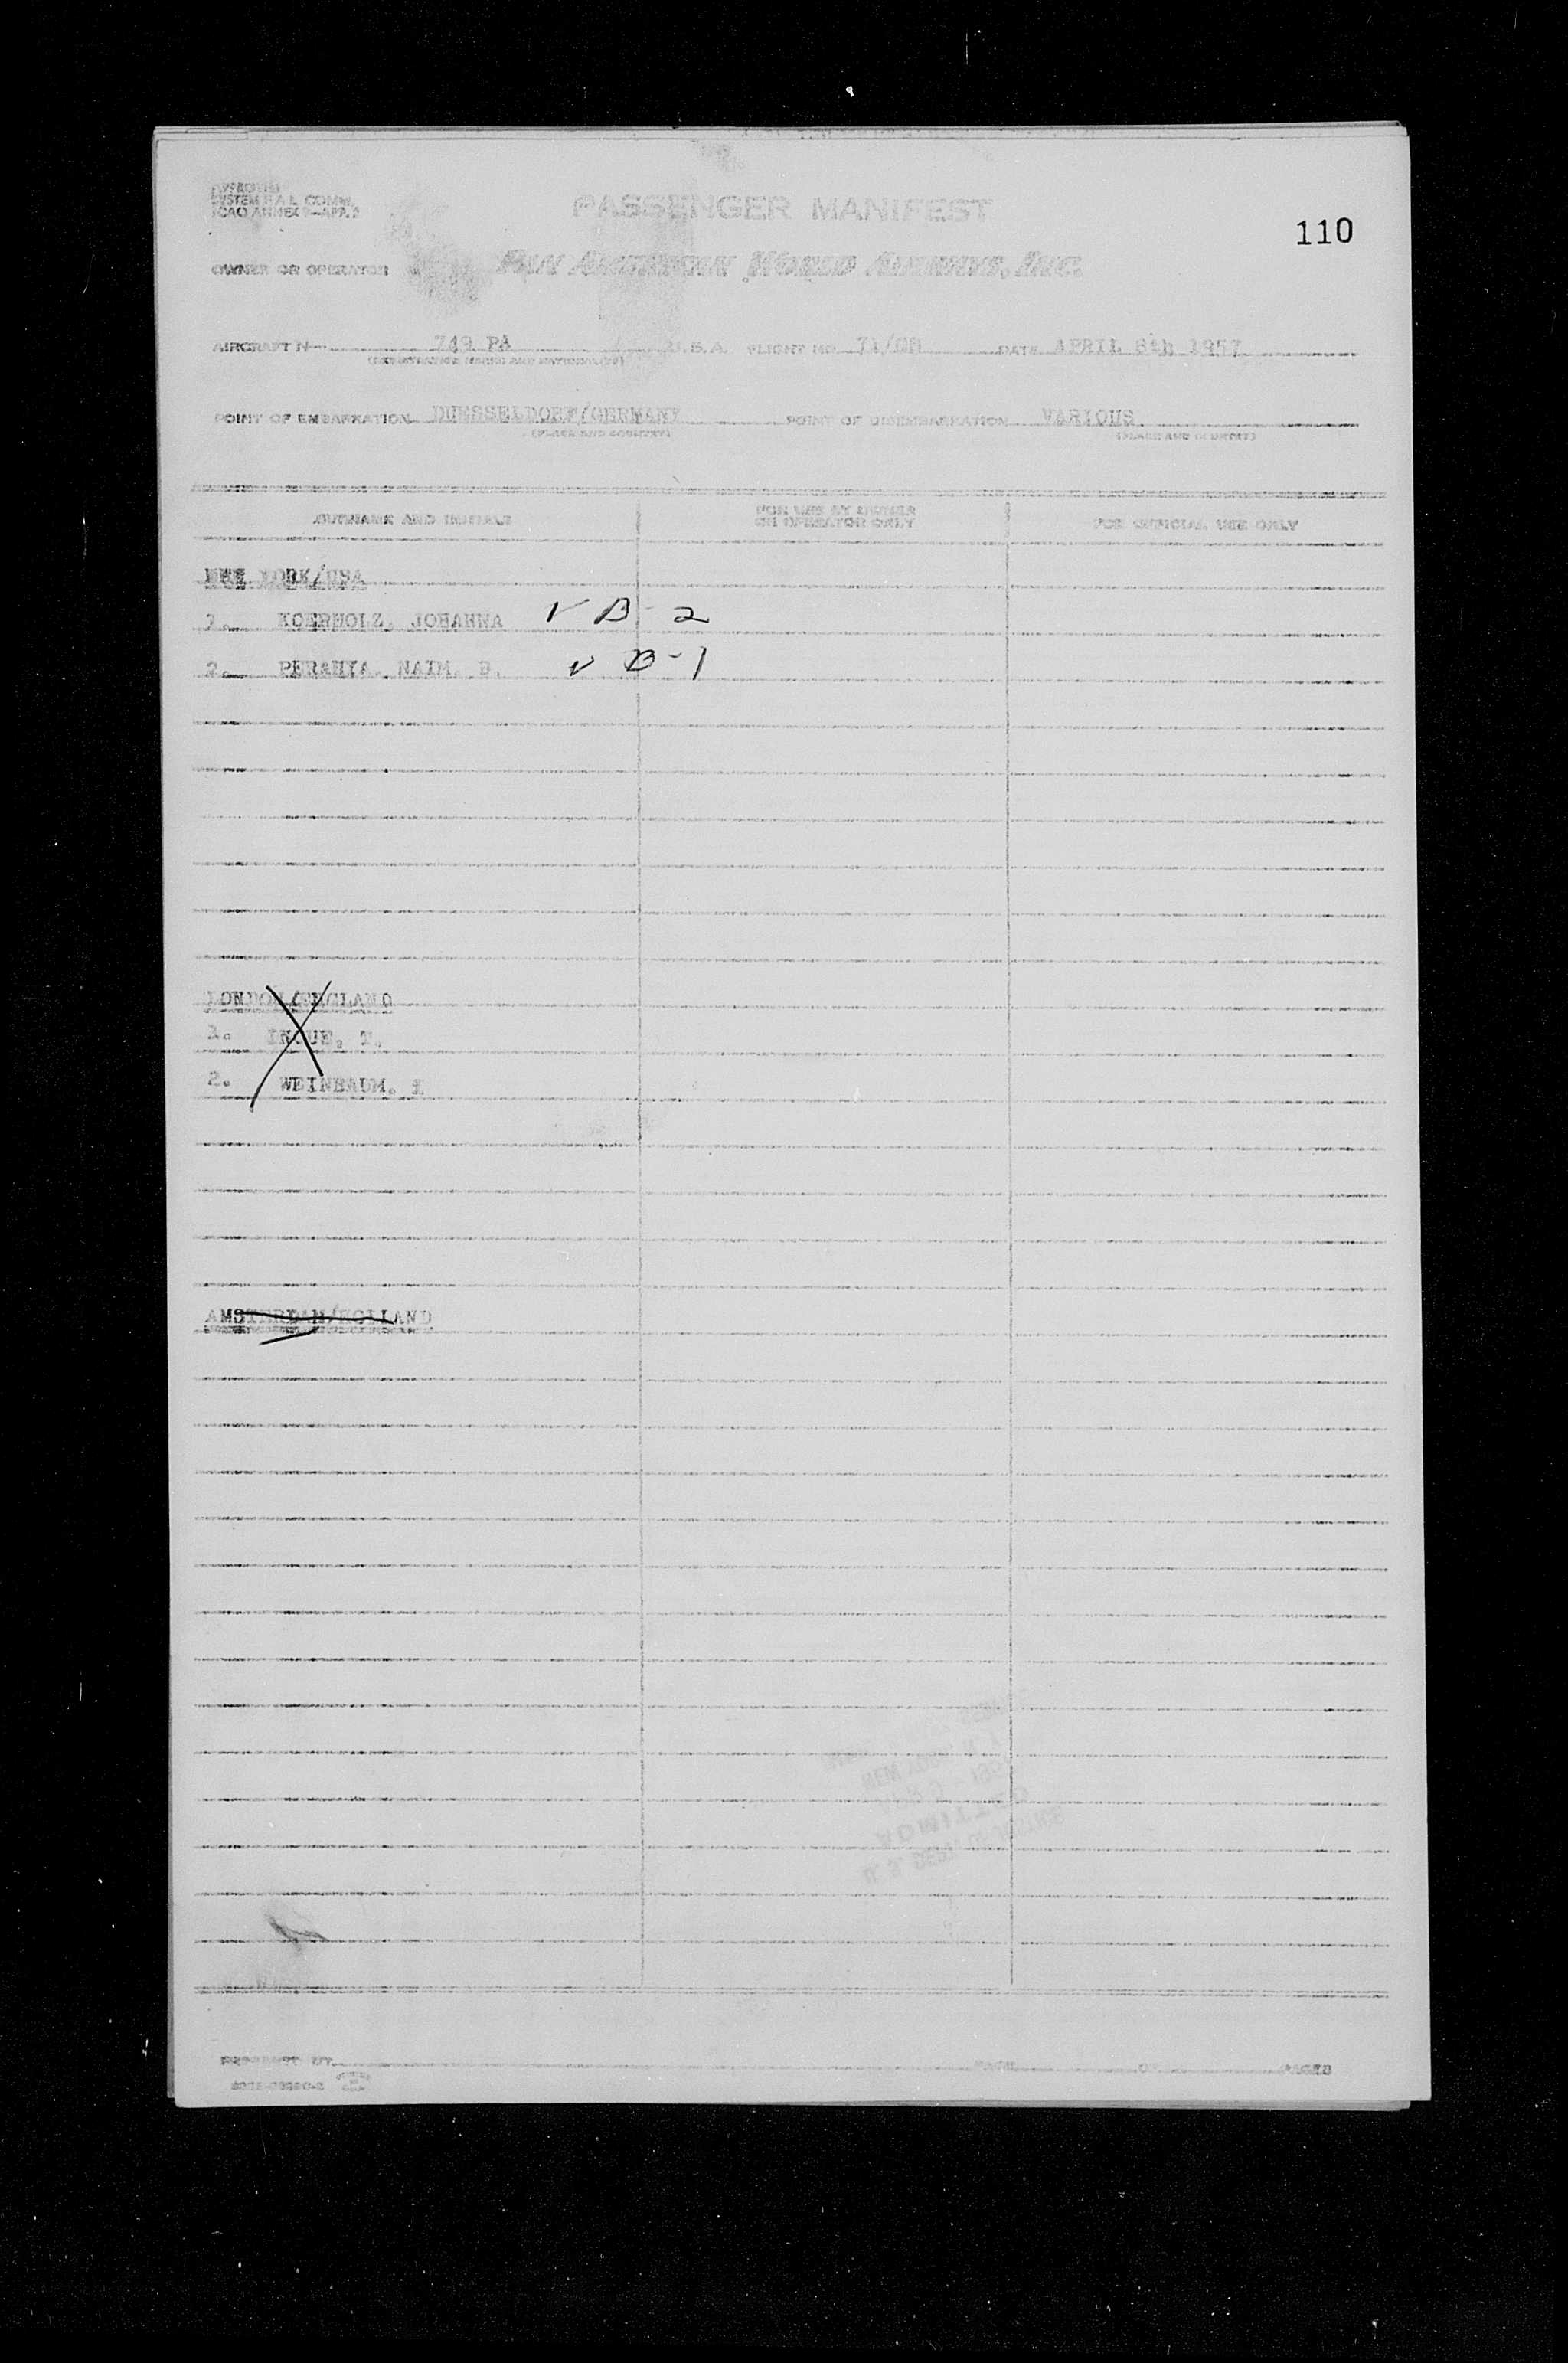 SYSTEM F.A.L. COMM.
ICAO ANNEX 9—APP. 2
PASSENGER MANIFEST
110
OWNER OR OPERATOR PAN AMERICAN WORLD AIRWAYS, INC.
AIRCRAFT N 749 PA U.S.A. FLIGHT NO. 71/08 DATE APRIL 8th 1957
(REGISTRATION MARKS AND NATIONALITY)
POINT OF EMBARKATION DUESSELDORF/GERMANY POINT OF DISEMBARKATION VARIOUS
(PLACE AND COUNTRY) (PLACE AND COUNTRY)
SURNAME AND INITIALS FOR USE BY OWNER OR OPERATOR ONLY FOR OFFICIAL USE ONLY
NEW YORK/USA
1. KOERHOLZ, JOHANNA V B - 2
2. PERAHIA, NAIM. B. V B - 1
LONDON/ENGLAND
1. INOUE, T.
2. WEINBAUM. I
AMSTERDAM/HOLLAND
NEW YORK, N.Y.
ADMITTED
U. S. DEPT. OF JUSTICE
PREPARED BY PAGE OF PAGES